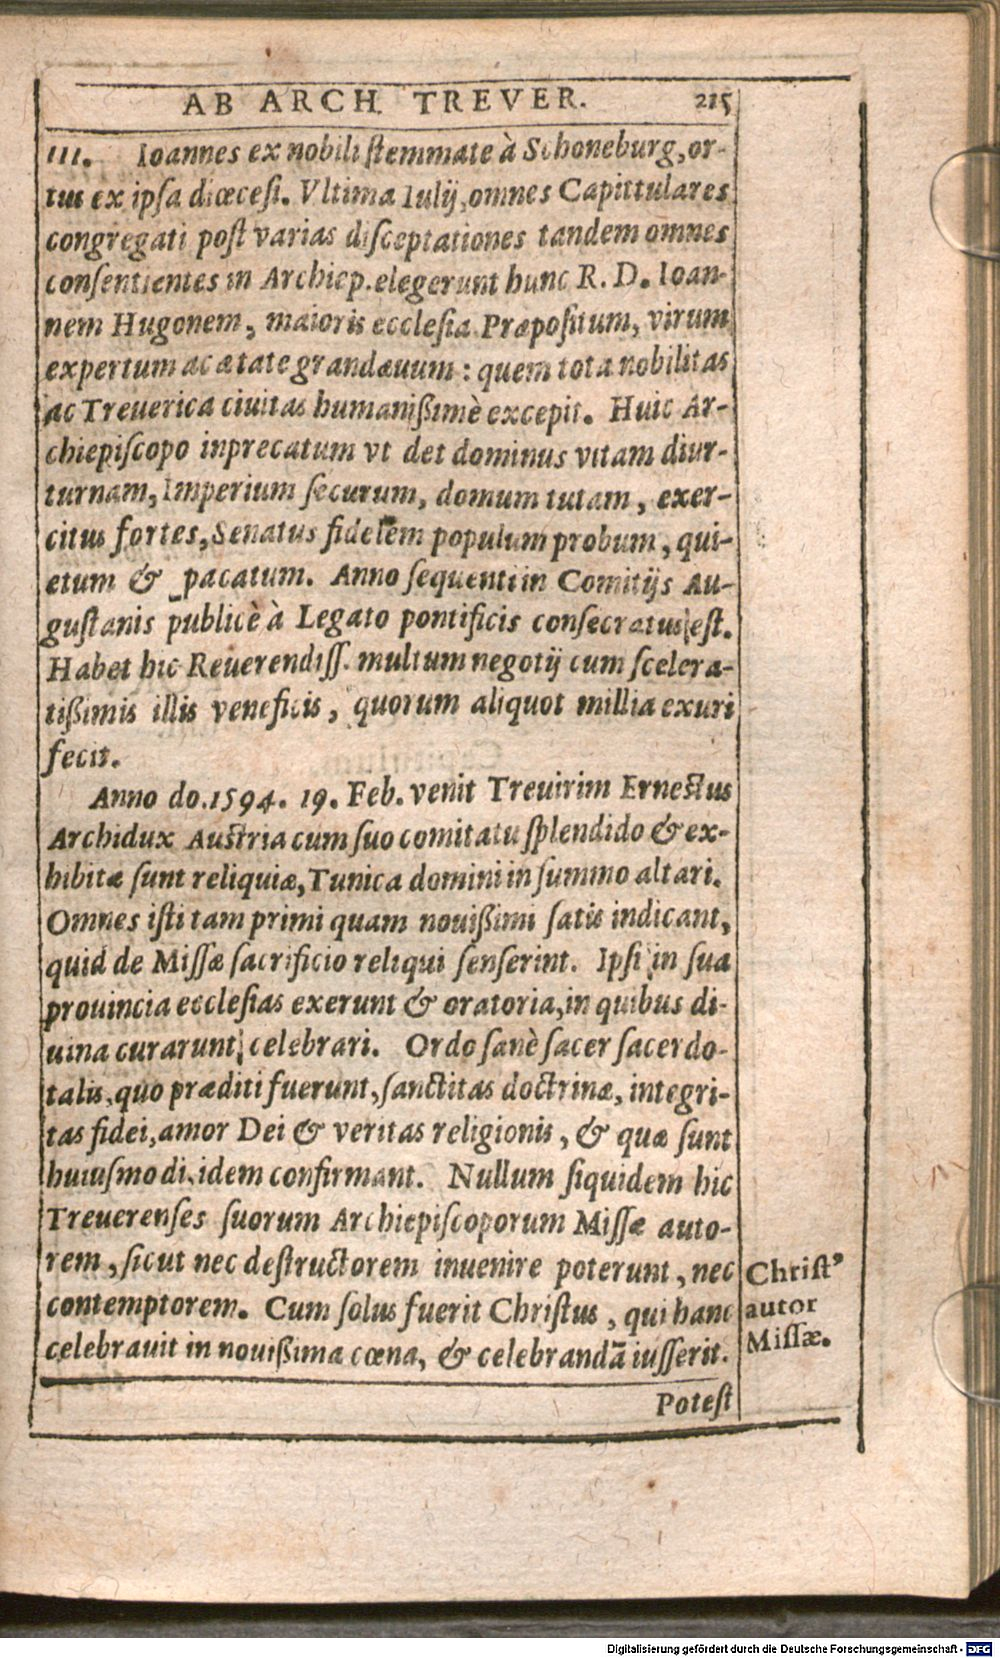 AB ARCH. TREVER. 215
III. Ioannes ex nobili ſtemmate à Schoneburg, or-
tus ex ipſa diœceſi. Vltima Iulij, omnes Capittulares
congregati poſt varias diſceptationes tandem omnes
conſentientes in Archiep. elegerunt hunc R. D. Ioan-
nem Hugonem, maioris eccleſiæ Præpoſitum, virum
expertum ac ætate grandæuum : quem tota nobilitas
ac Treuerica ciuitas humanißimè excepit. Huic Ar-
chiepiſcopo inprecatum vt det dominus vitam diur-
turnam, Imperium ſecurum, domum tutam, exer-
citus fortes, Senatus fidelem populum probum, qui-
etum & pacatum. Anno ſequenti in Comitijs Au-
guſtanis publicè à Legato pontificis conſecratus eſt.
Habet hic Reuerendiſſ. multum negotij cum ſcelera-
tißimis illis veneficis, quorum aliquot millia exuri
fecit.
Anno do. 1594. 19. Feb. venit Treuirim Erneſtus
Archidux Auſtria cum ſuo comitatu ſplendido & ex-
hibitæ ſunt reliquiæ, Tunica domini in ſummo altari.
Omnes iſti tam primi quam nouißimi ſatis indicant,
quid de Miſſæ ſacrificio reliqui ſenſerint. Ipſi in ſua
prouincia eccleſias exerunt & oratoria, in quibus di-
uina curarunt celebrari. Ordo ſanè ſacer ſacerdo-
talis, quo præditi fuerunt, ſanctitas doctrinæ, integri-
tas fidei, amor Dei & veritas religionis, & quæ ſunt
huiuſmodi, idem confirmant. Nullum ſiquidem hic
Treuerenſes ſuorum Archiepiſcoporum Miſſæ auto-
rem, ſicut nec deſtructorem inuenire poterunt, nec
contemptorem. Cum ſolus fuerit Chriſtus, qui hanc
celebrauit in nouißima cœna, & celebrandã iuſſerit.
Chriſtꝰ
autor
Miſſæ.
Poteſt
Digitalisierung gefördert durch die Deutsche Forschungsgemeinschaft - DFG